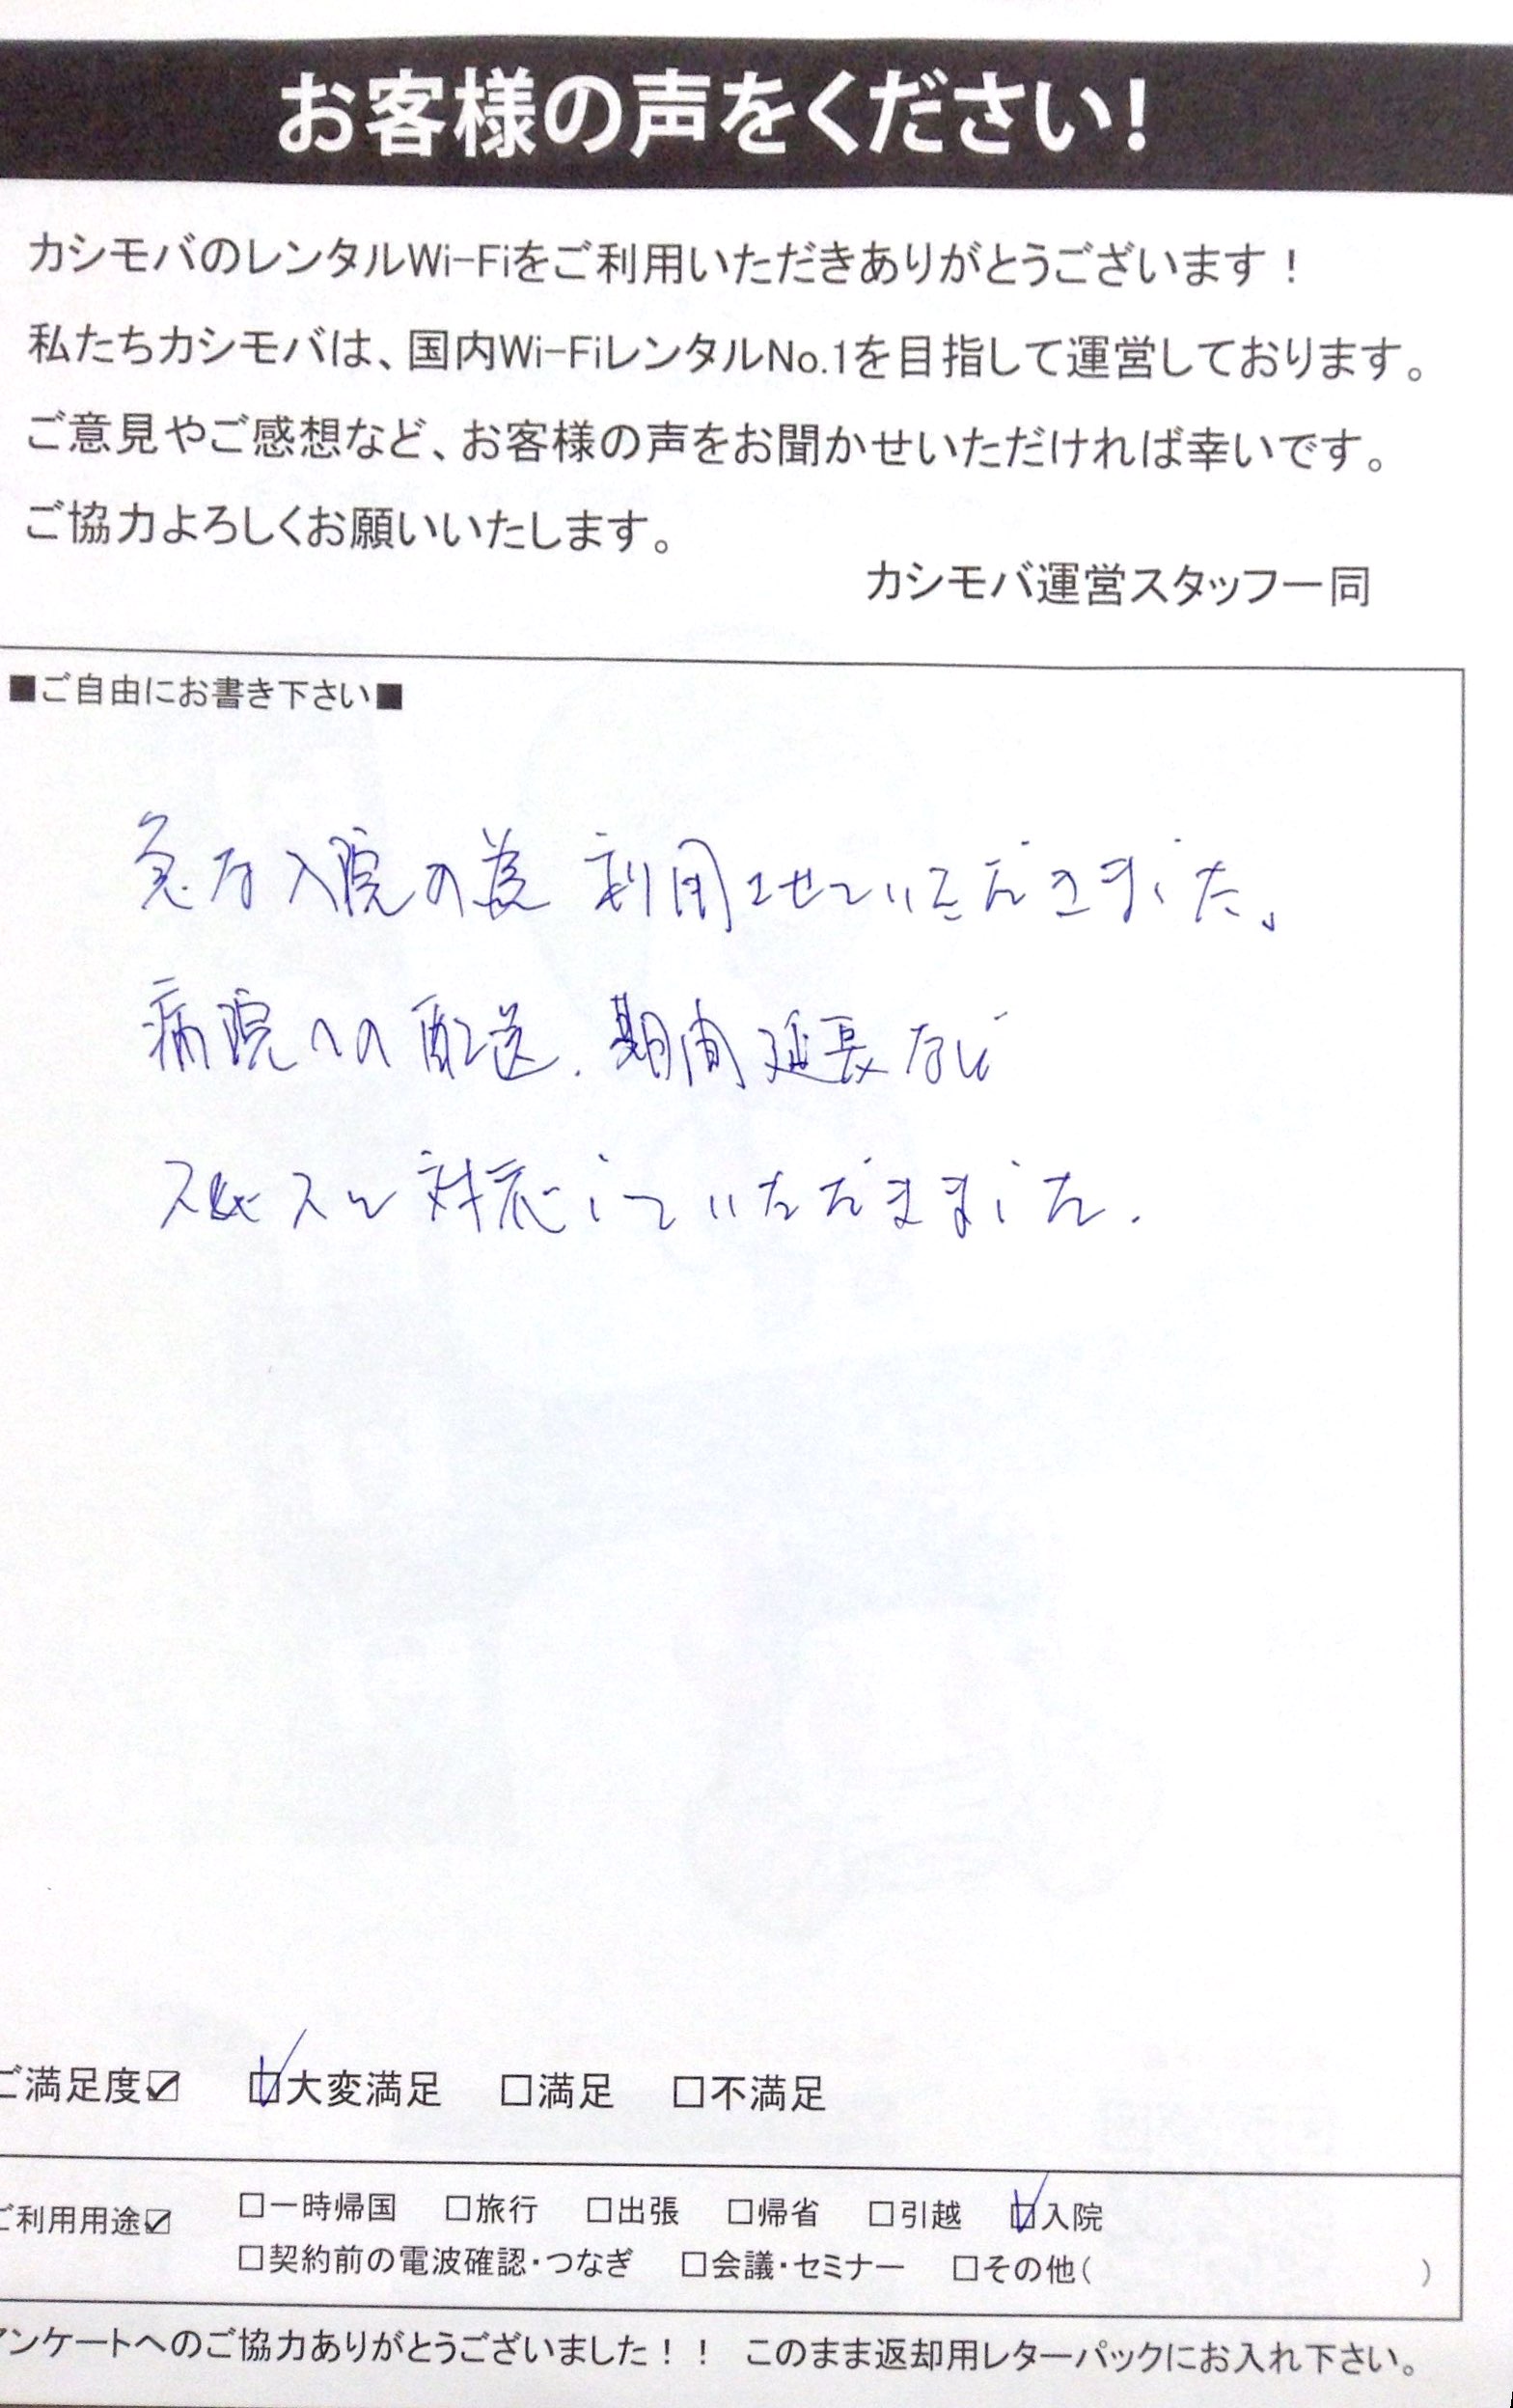 お客様の声をください!
カシモバのレンタルWi-Fiをご利用いただきありがとうございます!
私たちカシモバは、国内Wi-FiレンタルNo.1を目指して運営しております。
ご意見やご感想など、お客様の声をお聞かせいただければ幸いです。
ご協力よろしくお願いいたします。
カシモバ運営スタッフ一同
■ご自由にお書き下さい■
急な入院の為 利用させていただきました。
病院への配送、期間延長など
対応していただきました.
ご満足度☑ ☑大変満足 □満足 □不満足
ご利用用途☑ □一時帰国 □旅行 □出張 □帰省 □引越 ☑入院
□契約前の電波確認・つなぎ □会議・セミナー □その他( )
アンケートへのご協力ありがとうございました!! このまま返却用レターパックにお入れ下さい。